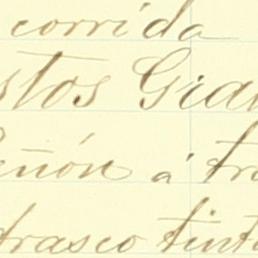 corrida
stos Gra
eñón á tra
frasco tinta